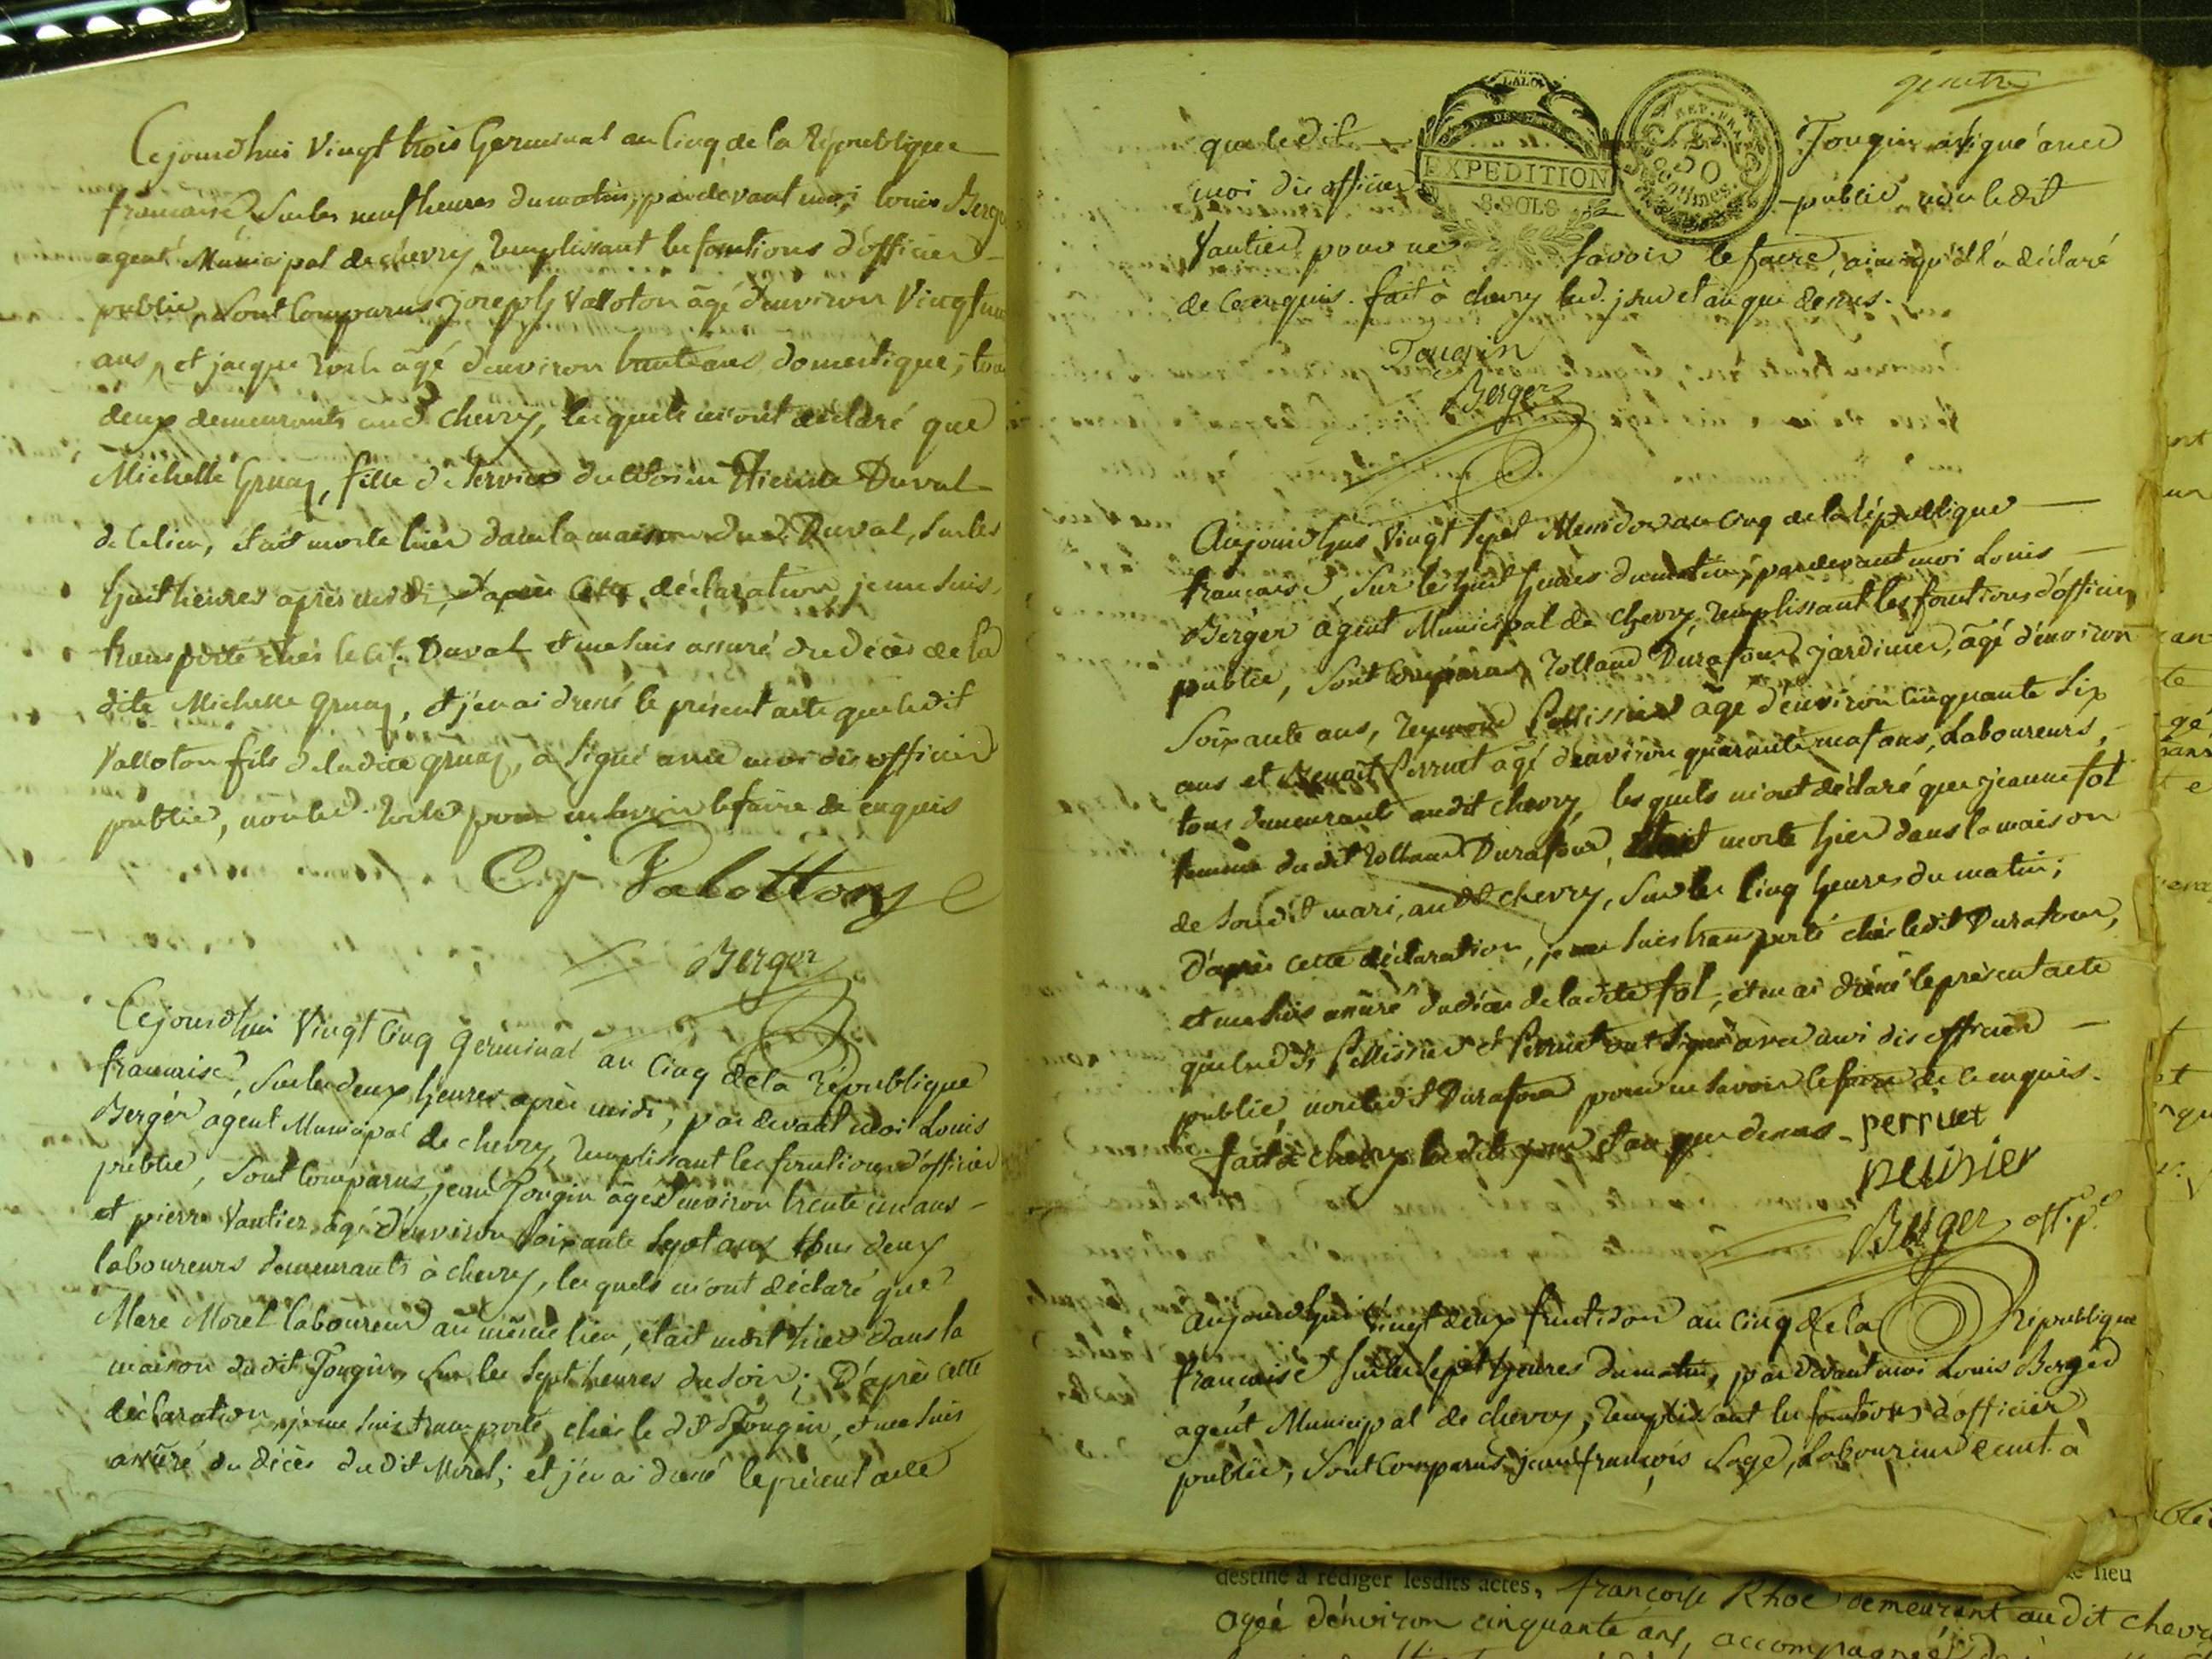 Cejourdhui vingt trois Germinal an cinq de la République
francaise, sur les neuf heures du matin, pardevant moi louis Berger
agent Municipal de chevry remplissant les fonctions d'officier
public, sont comparus joseph Valloton âgé d'environ vingt
ans, et jacque âgé d'environ trente ans domestique, tous
deux demeurants aud. chevry, lesquels m'ont déclaré que
Michelle Gruaz, fille de service du citoien Etienne Duval
de ce lieu, etait morte hier dans la maison dud. Duval, sur les
huit heures après midi, d'après cette déclaration je me suis
transporté chés le cit. Duval et me suis assuré du décès de la
dite Michelle gruaz, et j'en ai dressé le présent acte que ledit
Valloton fils de ladite gruaz, a signé avec moi dit officier
public, non led. pour ne savoir le faire de ce enquis
Valottons
Berger
Cejourdhui vingt cinq germinal an cinq de la République
francaise, sur les deux heures après midi, pardevant moi Louis
Berger agent Municipal de chevry, remplissant les fonctions d'officier
public, sont comparus, jean Fongin âgé d'environ trente un ans
et pierre Vautier âgé d'environ soixante sept ans tous deux
laboureurs demeurants à chevry, lesquels m'ont déclaré que
Marc Morel laboureur au même lieu, était mort hier dans la
maison dudit Fongin, sur les sept heures du soir; D'après cette
déclaration, je me suis transporté, chés le dit Fongin, et me suis
assuré du décès dudit Morel; et j'en ai dressé le présent acte
quatre
LA LOI
EXPEDITION
8. SOLS
REP. FRA
50
Centimes
que ledit Fongin a signé avec
moi dit officier public, non ledit
Vautier pour ne savoir le faire, ainsi qu'il l'a déclaré
de ce enquis. fait à chevry led. jour et an que dessus.
Fongin
Berger
Aujourdhui vingt sept Messidor an cinq de la république
francaise, sur les huit heures du matin, pardevant moi Louis
Berger agent Municipal de chevry, remplissant les fonctions d'officier
public, sont comparus, Rolland Durafour, jardinier, âgé d'environ
soixante ans, Reymond Pellissier âgé d'environ cinquante six
ans et Benoit Perruet âgé d'environ quarante neuf ans, Laboureurs,
tous demeurants audit chevry, lesquels m'ont déclaré que jeanne fol
femme dudit Rolland Durafour, était morte hier dans la maison
de son dit mari, audt chevry, sur les cinq heures du matin;
D'après cette déclaration, je me suis transporté chés ledit Durafour,
et me suis assuré du décès de ladite fol, et en ai dressé le présent acte
que lesdts Pellissier et Perruet ont signé avec moi dit officier
public non ledit Durafour pour ne savoir le faire de ce enquis.
fait à chevry ledit jour et an que dessus. perruet
pelisier
Berger off. p.c
aujourdhui vingt deux fructidor an cinq de la République
francaise sur les sept heures du matin, pardevant moi Louis Berger
agent Municipal de chevry, remplissant les fonctions d'officier
public, sont comparus jean françois Sage, Laboureur demt. à
destiné à rédiger lesdits actes, françoise Rhoc demeurant audit chevry
agée d'environ cinquante ans, accompagnée